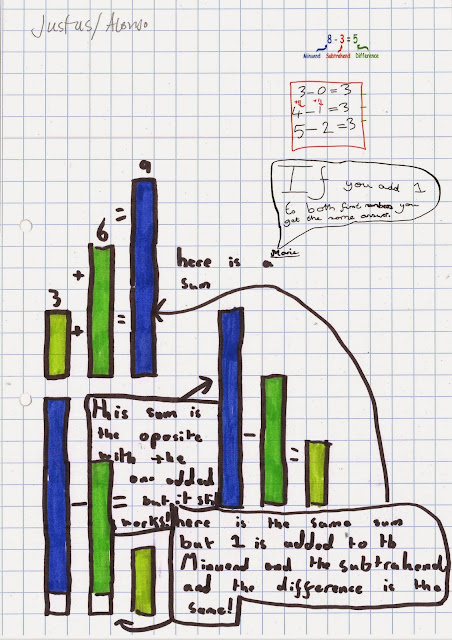 Justus/Alonso
8 - 3 = 5
Minuend Subtrahend Difference
3-0=3
+1 +1
4-1=3
5-2=3
If you add 1
to both first numbers you
get the same answer.
Marie
9
=
6
+
3
+
=
here is a
sum
This sum is
the oposite
with the
one added
but it still
works!
-
=
-
=
here is the same sum
but 1 is added to th
Minuend and the subtrahend
and the difference is the
same!